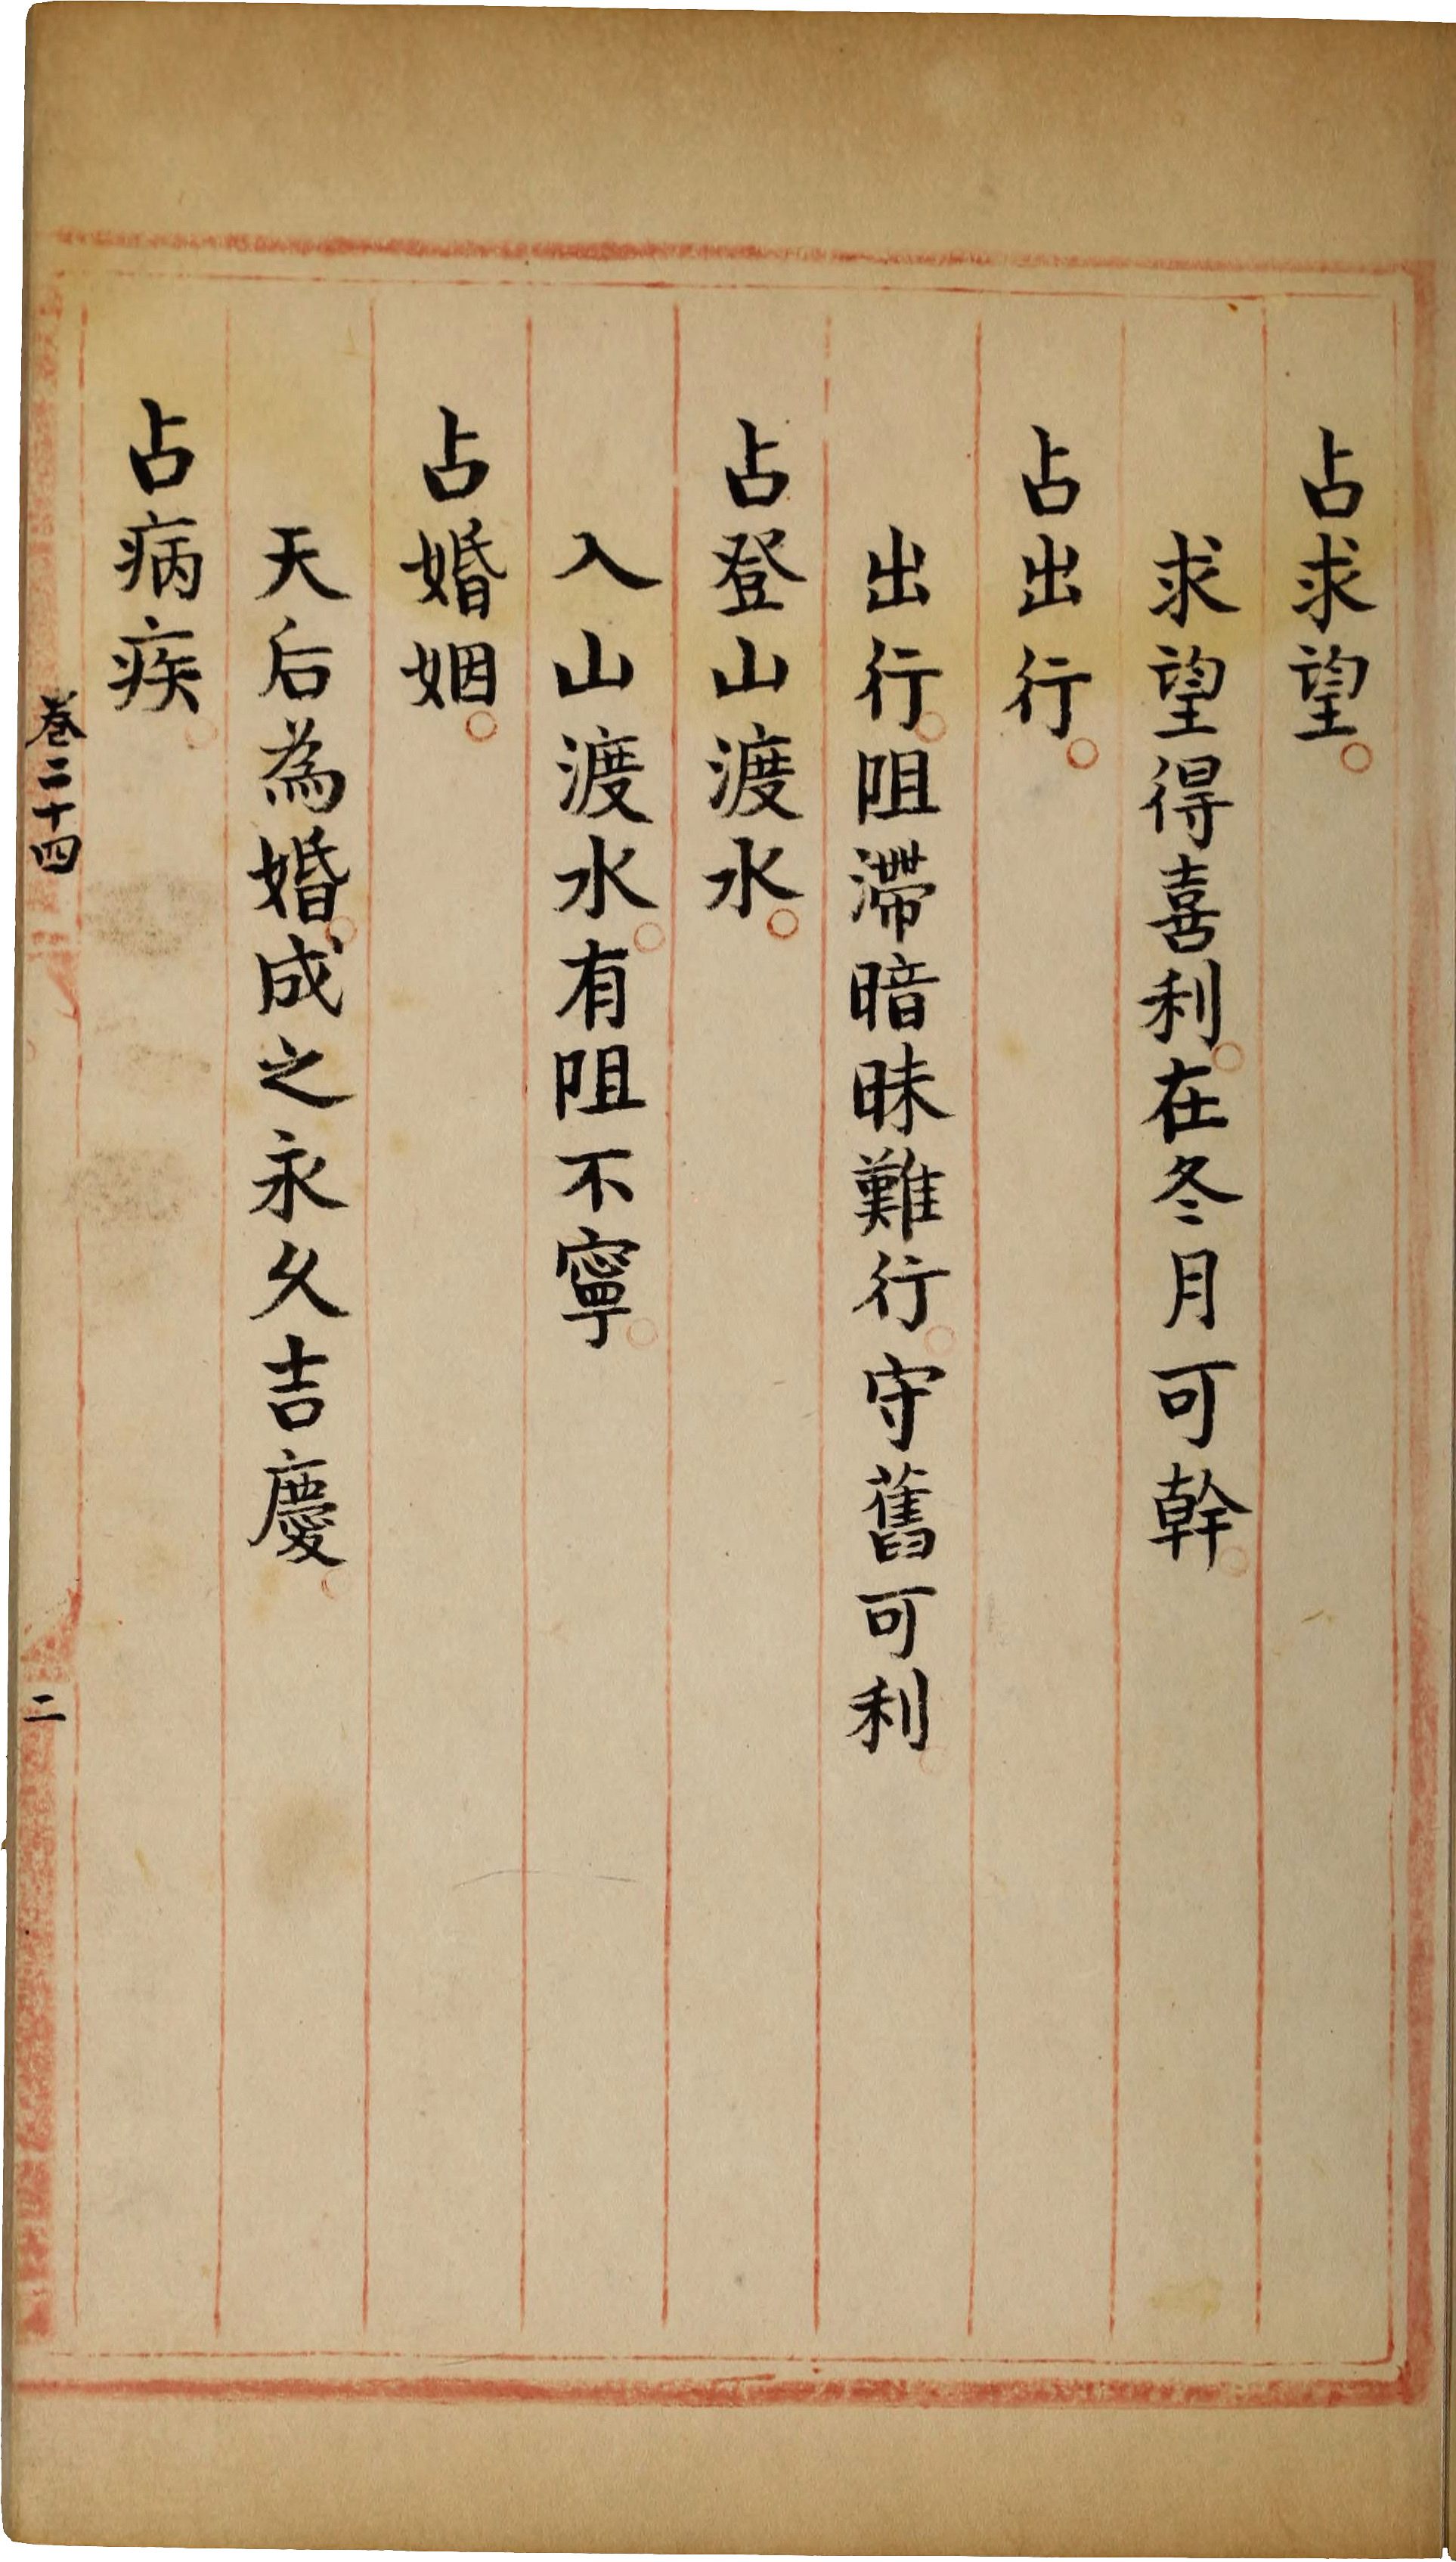 占求望。
求望得喜利。在冬月可幹。
占出行。
出行。阻滯暗昧難行。守舊可利。
占登山渡水。
入山渡水。有阻不寧。
占婚姻。
天后為婚。成之永久吉慶。
占病疾。
卷二十四
二